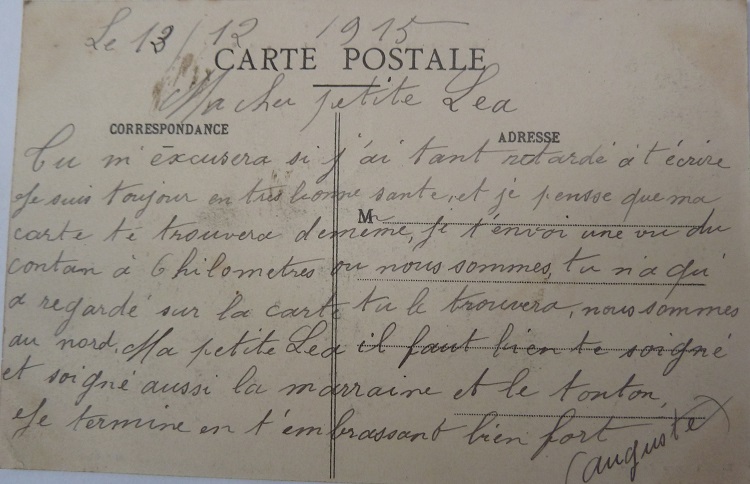 Le 13/12 1915
CARTE POSTALE
Ma cher petite Lea
CORRESPONDANCE
ADRESSE
Tu m'éxcusera si j'ai tant retardé à t'écrire
Je suis toujour en très bonne sante, et je pensse que ma
M
carte te trouvera de même, Je t'envoi une vu du
contan à 6 kilometres ou nous sommes, tu n'a qu'
a regardé sur la carte tu le trouvera, nous sommes
au nord. Ma petite Lea il faut bien te soigné
et soigné aussi la marraine et le tonton,
Je termine en t'embrassant bien fort
auguste